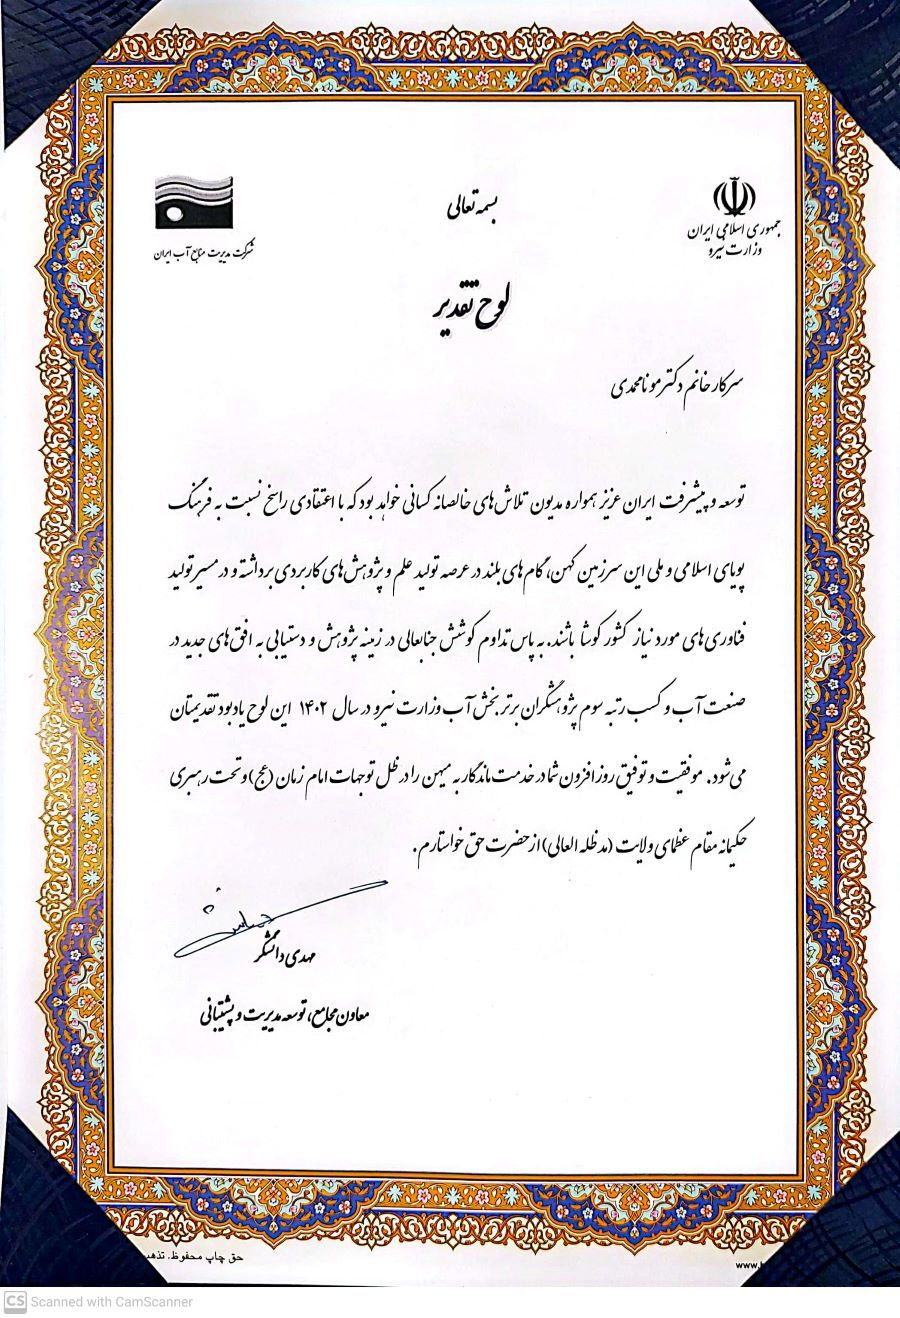 بسمه تعالی
جمهوری اسلامی ایران
وزارت نیرو
شرکت مدیریت منابع آب ایران
لوح تقدیر
سرکار خانم دکتر مونا محمدی
توسعه و پیشرفت ایران عزیز همواره مدیون تلاش‌های خالصانه کسانی خواهد بود که با اعتقادی راسخ نسبت به فرهنگ
پویای اسلامی و ملی این سرزمین کهن، گام‌های بلند در عرصه تولید علم و پژوهش‌های کاربردی برداشته و در مسیر تولید
فناوری‌های مورد نیاز کشور کوشا باشند. به پاس تداوم کوشش جنابعالی در زمینه پژوهش و دستیابی به افق‌های جدید در
صنعت آب و کسب رتبه سوم پژوهشگران برتر بخش آب وزارت نیرو در سال ۱۴۰۲ این لوح یادبود تقدیمتان
می‌شود. موفقیت و توفیق روزافزون شما در خدمت ماندگار به میهن را در ظل توجهات امام زمان (عج) و تحت رهبری
حکیمانه مقام عظمای ولایت (مدظله العالی) از حضرت حق خواستارم.
مهدی دانشگر
معاون مجامع، توسعه مدیریت و پشتیبانی
حق چاپ محفوظ. تذهیب
www.
CS Scanned with CamScanner